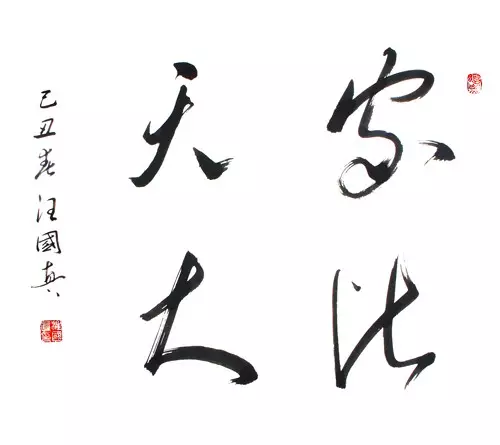 家比
天大
己丑春汪國真